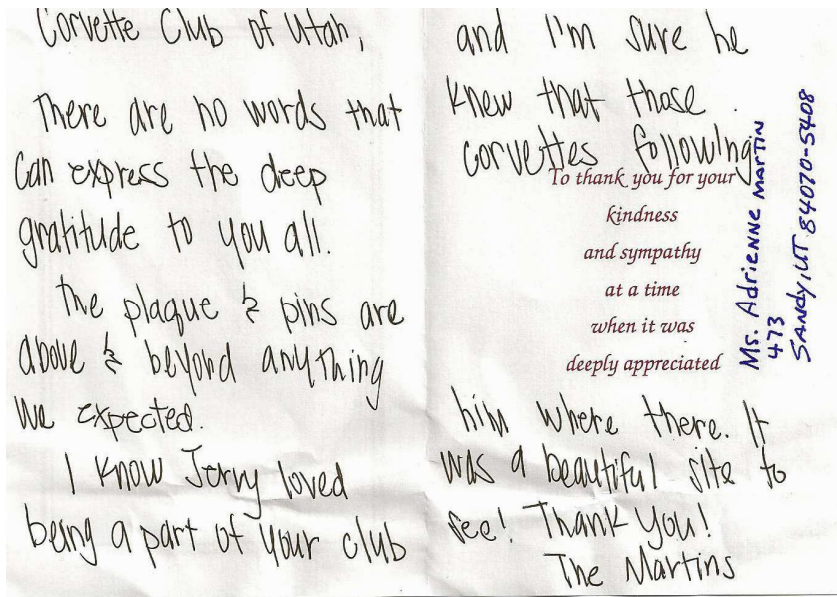 Corvette Club of Utah,
There are no words that
can express the deep
gratitude to you all.
The plaque & pins are
above & beyond anything
we expected.
I know Jerry loved
being a part of your club
and I'm sure he
knew that those
corvettes following
To thank you for your
kindness
and sympathy
at a time
when it was
deeply appreciated
him where there. It
was a beautiful site to
see! Thank you!
The Martins
Ms. Adrienne Martin
473
Sandy, UT 84070-5408